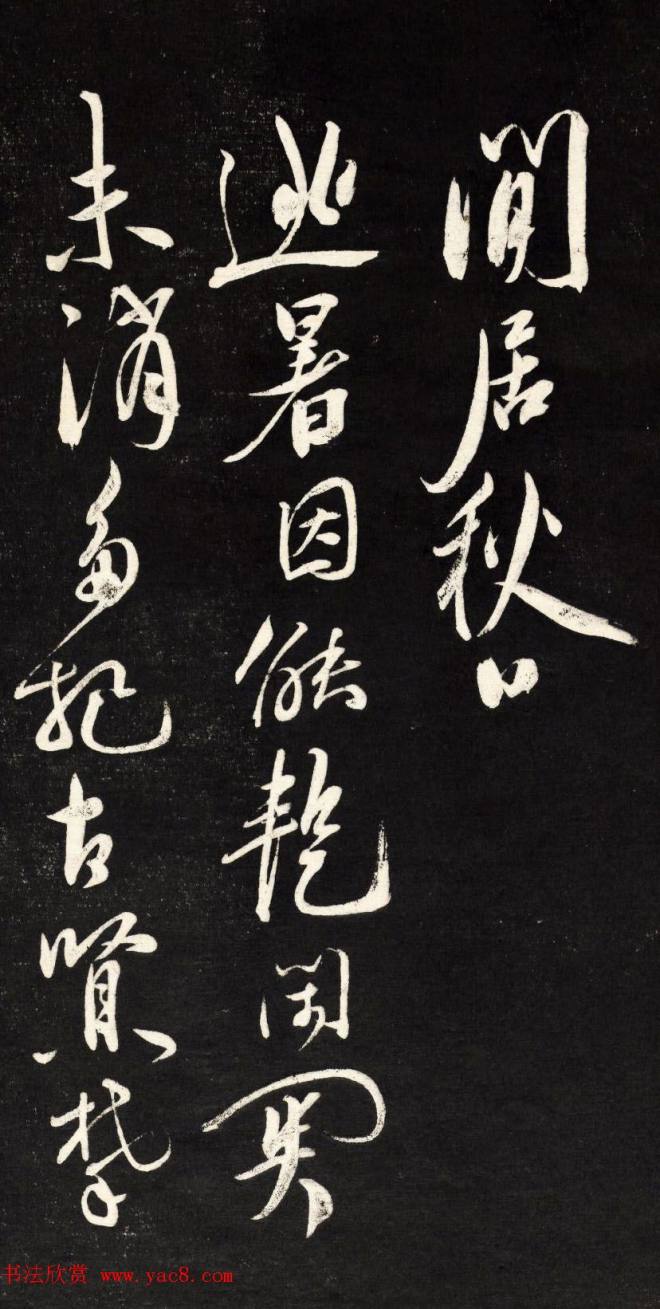 閒居秋日
逃暑因能暫閉關
未消多把古賢攀
书法欣赏 www.yac8.com